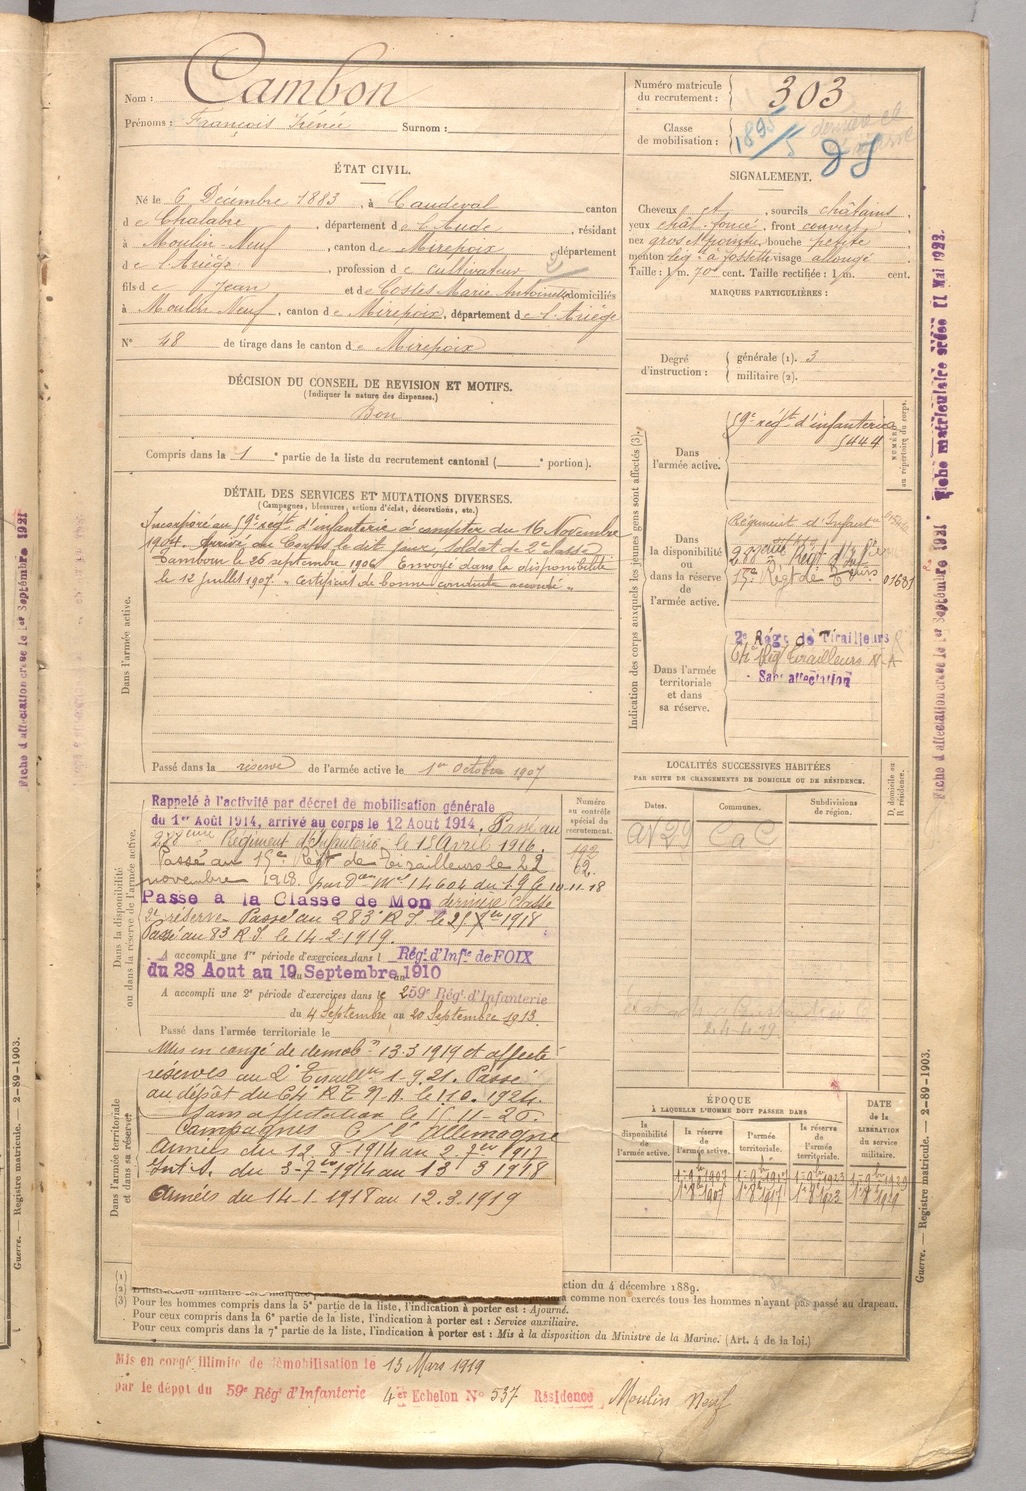 Nom : Cambon
Prénoms : François Irénée Surnom :
Numéro matricule du recrutement : 303
Classe de mobilisation : 1895/5
ÉTAT CIVIL.
Né le 6 Décembre 1883, à Caudeval canton
de Chalabre, département de l'Aude, résidant
à Moulin-Neuf, canton de Mirepoix département
de l'Ariège, profession de cultivateur
fils de Jean et de Costes Marie Antoinette domiciliés
à Moulin Neuf, canton de Mirepoix, département de l'Ariège
N° 48 de tirage dans le canton de Mirepoix
SIGNALEMENT.
Cheveux et, sourcils châtains,
yeux chât. foncé, front couvert,
nez gros et pointu, bouche petite
menton à fossette visage allongé
Taille : 1 m. 70 cent. Taille rectifiée : 1 m. cent.
MARQUES PARTICULIÈRES :
Degré d'instruction : générale (1). 3
militaire (2).
DÉCISION DU CONSEIL DE REVISION ET MOTIFS.
(Indiquer la nature des dispenses.)
Bon
Compris dans la 1e partie de la liste du recrutement cantonal ( e portion).
DÉTAIL DES SERVICES ET MUTATIONS DIVERSES.
(Campagnes, blessures, actions d'éclat, décorations, etc.)
Dans l'armée active.
Incorporé au 59e régt d'infanterie à compter du 16 Novembre
1904. Arrivé au Corps le dit jour, Soldat de 2e classe
Tambour le 26 septembre 1906. Envoyé dans la disponibilité
le 12 juillet 1907. "Certificat de bonne conduite accordé"
Passé dans la réserve de l'armée active le 1er Octobre 1907
Indication des corps auxquels les jeunes gens sont affectés (3).
NUMÉRO au répertoire du corps.
Dans l'armée active.
59e régt d'infanterie
5444
Dans la disponibilité ou dans la réserve de l'armée active.
Régiment d'Infanterie
15e Régt de Tirailleurs 01681
Dans l'armée territoriale et dans sa réserve.
2e Régt de Tirailleurs
64e Régt Tirailleurs N-A
Sans affectation
LOCALITÉS SUCCESSIVES HABITÉES
PAR SUITE DE CHANGEMENTS DE DOMICILE OU DE RÉSIDENCE.
Dates. Communes. Subdivisions de région. D. domicile ou R. résidence.
Dans la disponibilité ou dans la réserve de l'armée active.
Numéro au contrôle spécial du recrutement.
192
62.
Rappelé à l'activité par décret de mobilisation générale
du 1er Août 1914, arrivé au corps le 12 Août 1914. Passé au
288ème Régiment d'Infanterie le 15 Avril 1916.
Passé au 15e Régt de Tirailleurs le 22
novembre 1918. 14604 du 19 le 10-11-18
Passé à la Classe de Mon dernière classe
2e réserve Passé au 283e R.I. le 1918
Passé au 83 R.I. le 14-2-1919.
A accompli une 1re période d'exercices dans l Régt d'Infie de FOIX
du 28 Aout au 19 Septembre 1910
A accompli une 2e période d'exercices dans le 259e Régt d'Infanterie
du 4 Septembre au 20 Septembre 1913.
Passé dans l'armée territoriale le
Dans l'armée territoriale et dans sa réserve.
Mis en congé de démobon 13-3 1919 et affecté
réserves au 2e Tirailleurs 1-9-21. Passé
au dépôt du 64e R T N A. le 1.10.1924.
Sans affectation le
Campagnes C/ l'Allemagne
Armées du 12-8-1914 au 2-7bre 1917
Int. S. du 3-7bre 1914 au 13 3 1918
Armées du 14-1-1918 au 12.3.1919
ÉPOQUE
À LAQUELLE L'HOMME DOIT PASSER DANS
la disponibilité de l'armée active. la réserve de l'armée active. l'armée territoriale. la réserve de l'armée territoriale.
DATE de la LIBÉRATION du service militaire.
1-9bre 1907 1-9bre 1917 1-9bre 1923 1-9bre 1929
1er 8bre 1907 1er 8bre 1917 1er 8bre 1923 1er 8bre 1929
(1) ction du 4 décembre 1889.
(2) a comme non exercés tous les hommes n'ayant pas passé au drapeau.
(3) Pour les hommes compris dans la 5e partie de la liste, l'indication à porter est : Ajourné.
Pour ceux compris dans la 6e partie de la liste, l'indication à porter est : Service auxiliaire.
Pour ceux compris dans la 7e partie de la liste, l'indication à porter est : Mis à la disposition du Ministre de la Marine. (Art. 4 de la loi.)
Mis en congé illimité de démobilisation le 13 Mars 1919
par le dépôt du 59e Régt d'Infanterie 4er Echelon N° 537 Résidence Moulin Neuf
Fiche matriculaire créée 11 Mai 1922.
Fiche d'affectation créée le 1er Septembre 1921
Guerre. — Registre matricule. — 2-89-1903.
Fiche d'affectation créée le 1er Septembre 1921
Guerre. — Registre matricule. — 2-89-1903.